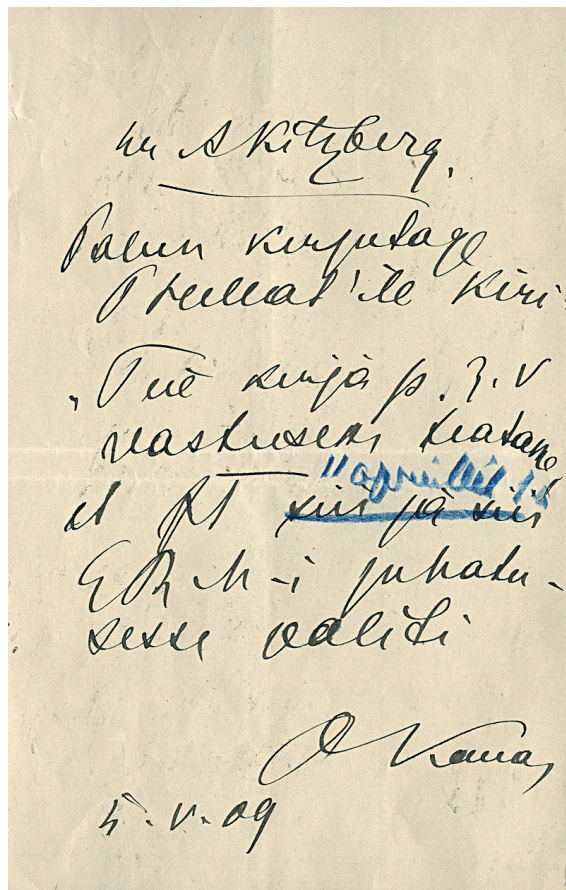 Hr A Kitzberg.
Palun kirjutage
'ile kiri:
„Teie kirja p. 3. V
vastuseks teatame
et
11 aprillil
siis ja siis
ERM-i juhatu-
sesse valiti
O Kallas
5.V.09